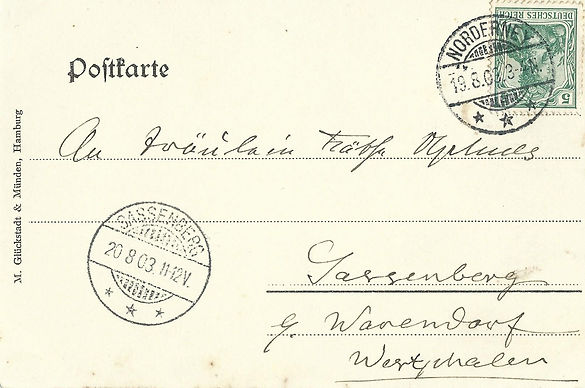 NORDERNEY
19.8.03
DEUTSCHES REICH
5
Postkarte
An Fräulein Käthe
SASSENBERG
20 8 03. 11-12V.
Sassenberg
Warendorf
Westphalen
M. Glückstadt & Münden, Hamburg